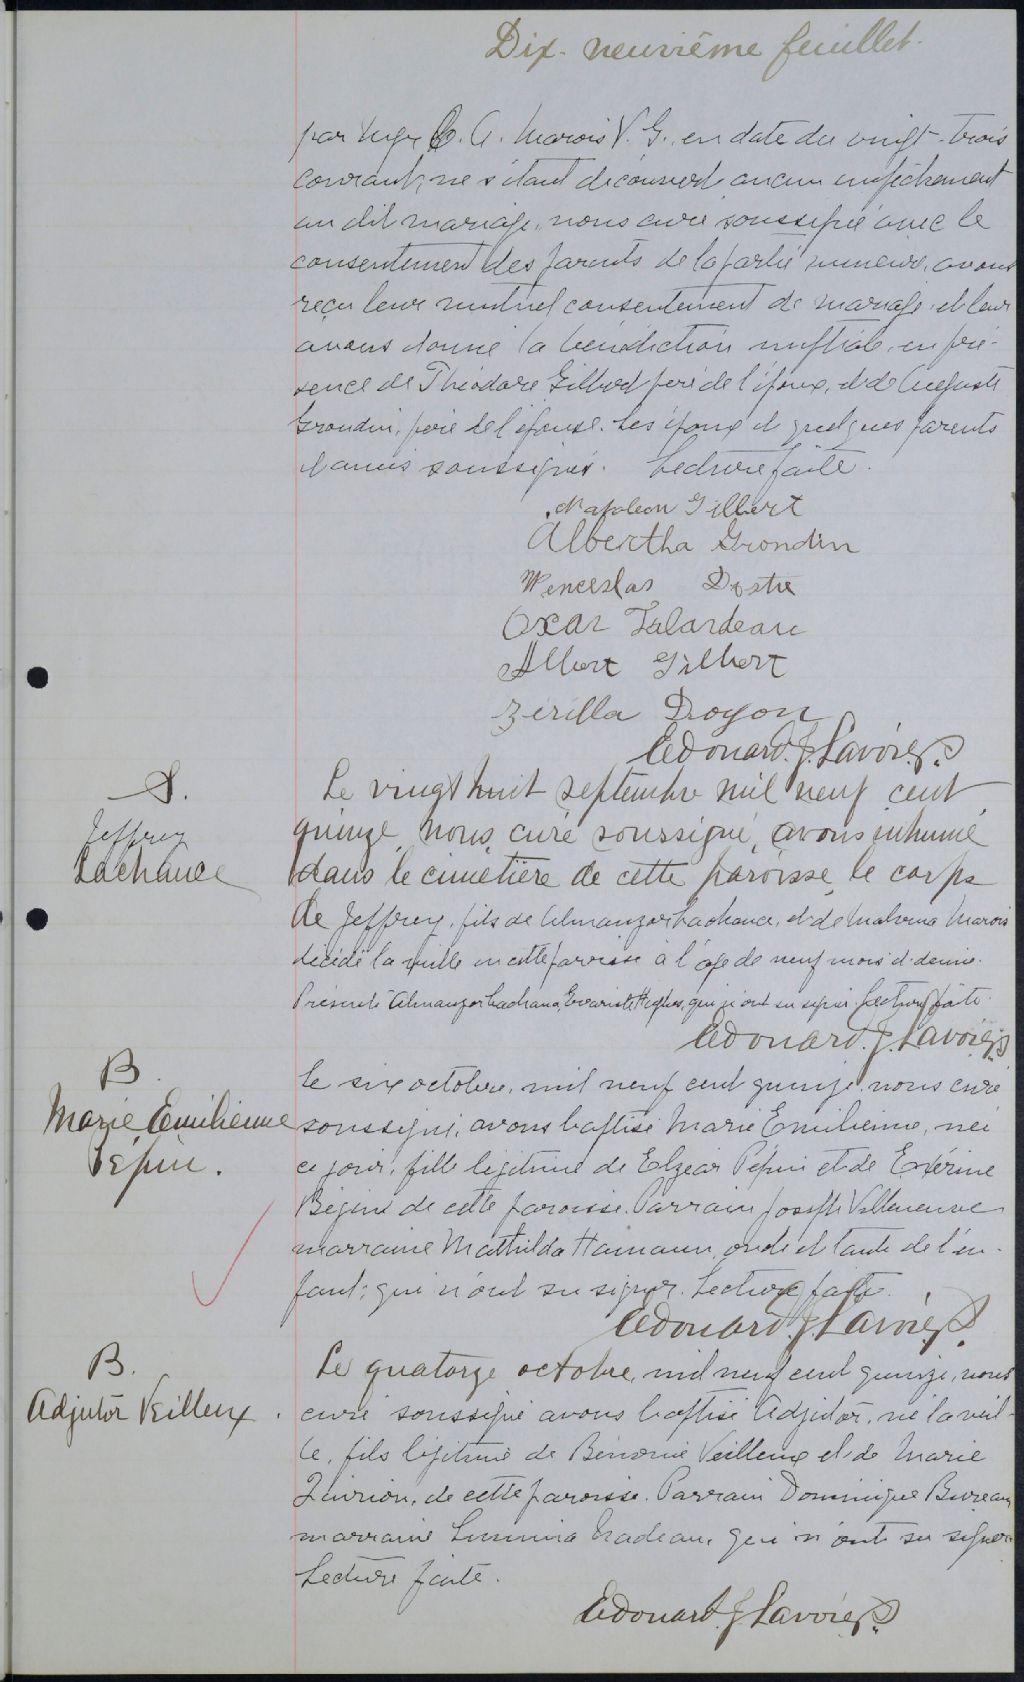 Dix-neuvième feuillet.
par Mgr C. A. Marois V. G., en date du vingt-trois
courant, ne s'étant découvert aucun empêchement
au dit mariage, nous curé soussigné avec le
consentement des parents de la partie mineure, avons
reçu leur mutuel consentement de mariage et leur
avons donné la bénédiction nuptiale, en pré-
sence de Théodore Gilbert père de l'époux, et de Auguste
Grondin, père de l'épouse. Les époux et quelques parents
et amis soussignés. Lecture faite.
Napoleon Gilbert
Albertha Grondin
Wenceslas
Oscar Talardeau
Albert Gilbert
Zérilla Doyon
Edouard J. Lavoie, p
S.
Jeffrey
Lachance
Le vingt huit septembre mil neuf cent
quinze, nous, curé soussigné, avons inhumé
dans le cimetière de cette paroisse, le corps
de Jeffrey, fils de Almanzor Lachance, et de Malvina Marois
décédé la veille en cette paroisse à l'âge de neuf mois et demi.
Présents Almanzor Lachance, Evariste qui n'ont su signer. Lecture faite.
Edouard J. Lavoie, p
B.
Marie Emilienne
Pépin.
Le six octobre, mil neuf cent quinze nous curé
soussigné, avons baptisé Marie Emilienne, née
ce jour, fille légitime de Elzear Pépin et de Exérine
Bégin de cette paroisse. Parrain Joseph Villeneuve
marraine Mathilda Hamann, oncle et tante de l'en-
fant; qui n'ont su signer. Lecture faite.
Edouard J. Lavoie, p
B.
Adjutor Veilleux.
Le quatorze octobre, mil neuf cent quinze, nous
curé soussigné avons baptisé Adjutor, né la veil-
le, fils légitime de Bénonie Veilleux et de Marie
de cette paroisse. Parrain Dominique Bureau
marraine Nadeau, qui n'ont su signer
Lecture faite.
Edouard J Lavoie, p